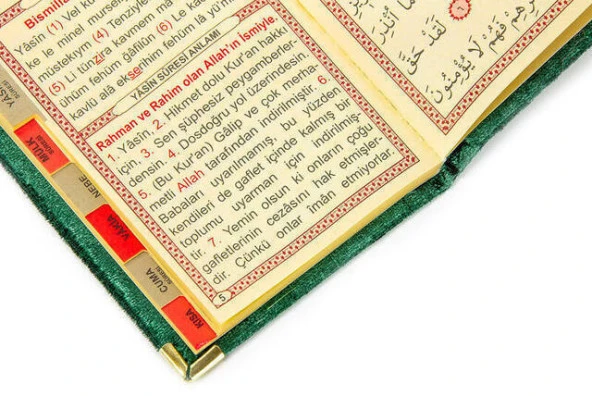 Bismilla
Yâsîn (1) Vel ku
ke le minel mursel
müstekıym (4) Tenziyle
(5) Li tünzira kavmem mâ
ühüm fehüm ğâfilûn (6) Le kad
kavlü alâ ekserihim fehüm lâ yü'm
YÂSİN SÛRESİ ANLAMI
Rahman ve Rahim olan Allah'ın İsmiyle.
1. Yâsîn, 2. Hikmet dolu Kur'an hakkı
için, 3. Sen şüphesiz peygamberler-
densin. 4. Dosdoğru yol üzerindesin.
5. (Bu Kur'an) Gâlip ve çok merha-
metli Allah tarafından indirilmiştir. 6.
Babaları uyarılmamış, bu yüzden
kendileri de gaflet içinde kalmış bir
toplumu uyarman için indirilmiş-
tir. 7. Yemin olsun ki onların çoğu
gafletlerinin cezâsını hak etmişler-
dir. Çünkü onlar îmân etmiyorlar.
5
YÂSİN
SÛRESİ
MÜLK
SÛRESİ
NEBE
VÂKIA
CUMA
SÛRESİ
KISA
لَقَدْ حَقَّ
فَهُمْ لَا يُؤْمِنُونَ